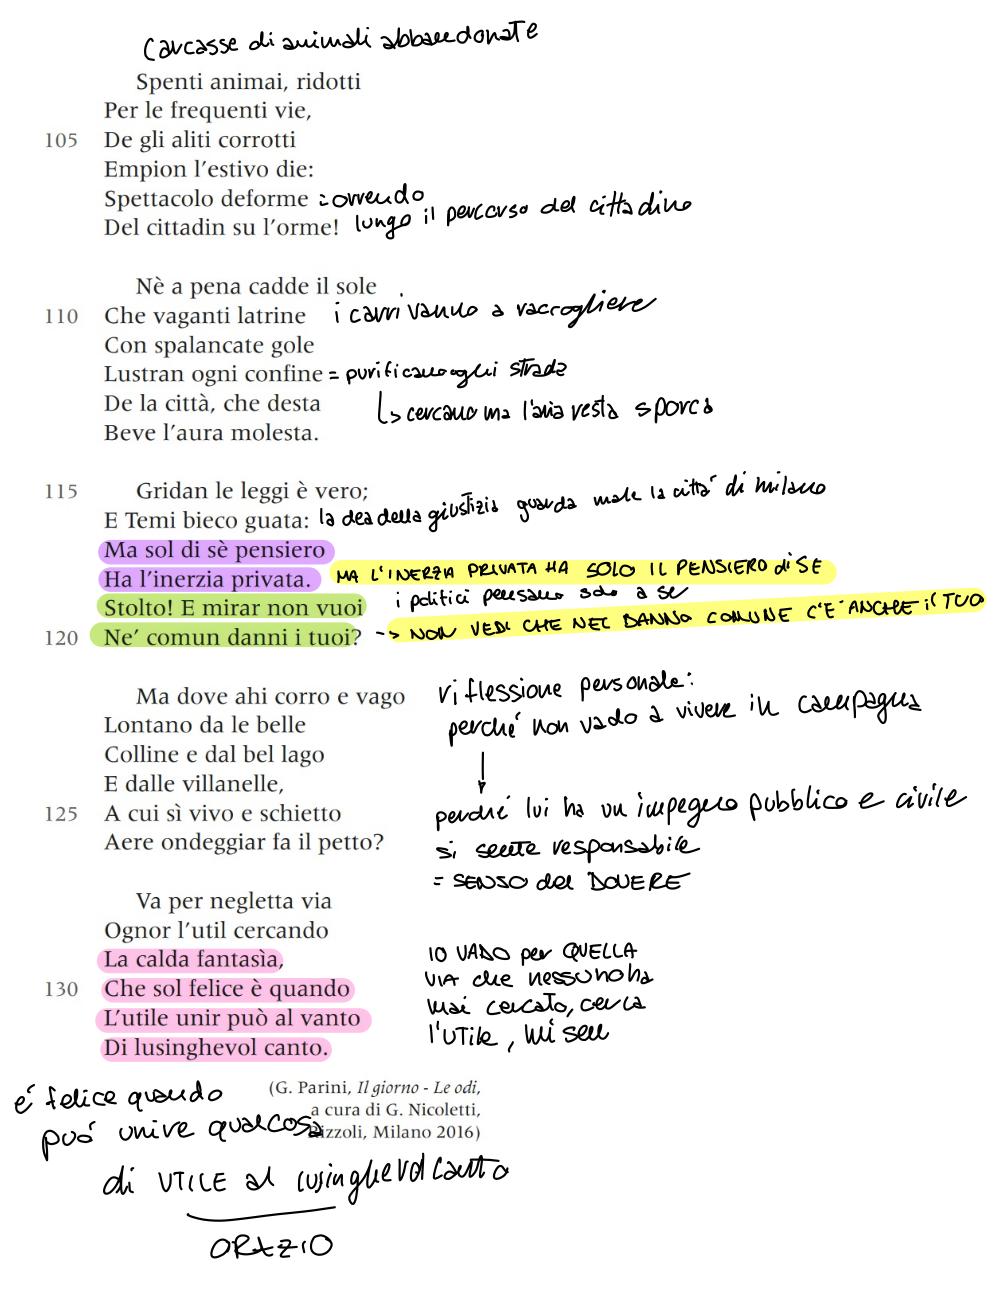 carcasse di animali abbandonate
Spenti animai, ridotti
Per le frequenti vie,
105 De gli aliti corrotti
Empion l'estivo die:
Spettacolo deforme = orrendo
Del cittadin su l'orme! lungo il percorso del cittadino
Nè a pena cadde il sole
110 Che vaganti latrine i carri vanno a raccogliere
Con spalancate gole
Lustran ogni confine = purificano ogni strada
De la città, che desta ↳ cercano ma l'aria resta sporca
Beve l'aura molesta.
115 Gridan le leggi è vero;
E Temi bieco guata: la dea della giustizia guarda male la città di milano
Ma sol di sè pensiero
Ha l'inerzia privata. MA L'INERZIA PRIVATA HA SOLO IL PENSIERO di SE
Stolto! E mirar non vuoi i politici pensano solo a se
120 Ne' comun danni i tuoi? -> NON VEDI CHE NEL DANNO COMUNE C'E' ANCHE il TUO
Ma dove ahi corro e vago riflessione personale:
Lontano da le belle perché non vado a vivere in campagna
Colline e dal bel lago
E dalle villanelle, ↓
125 A cui sì vivo e schietto perché lui ha un impegno pubblico e civile
Aere ondeggiar fa il petto? si sente responsabile
= SENSO del DOVERE
Va per negletta via
Ognor l'util cercando
La calda fantasìa, IO VADO per QUELLA
130 Che sol felice è quando VIA che nessuno ha
L'utile unir può al vanto mai cercato, cerca
Di lusinghevol canto. l'UTILE, mi
(G. Parini, Il giorno - Le odi,
a cura di G. Nicoletti,
Rizzoli, Milano 2016)
é felice quando
puó unire qualcosa
di UTILE al lusinghevol canto
ORAZIO